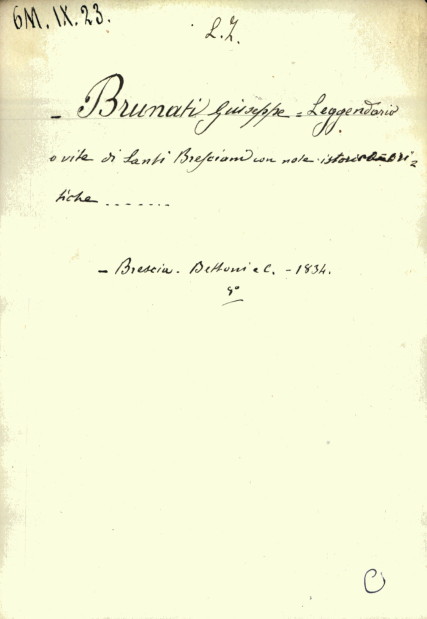 6M. IX. 23.
L. Z.
- Brunati Giuseppe = Leggendario
o vite di Santi Bresciani con note istorico=cri=
tiche .......
- Brescia. Bettoni e C. - 1834.
8°
C